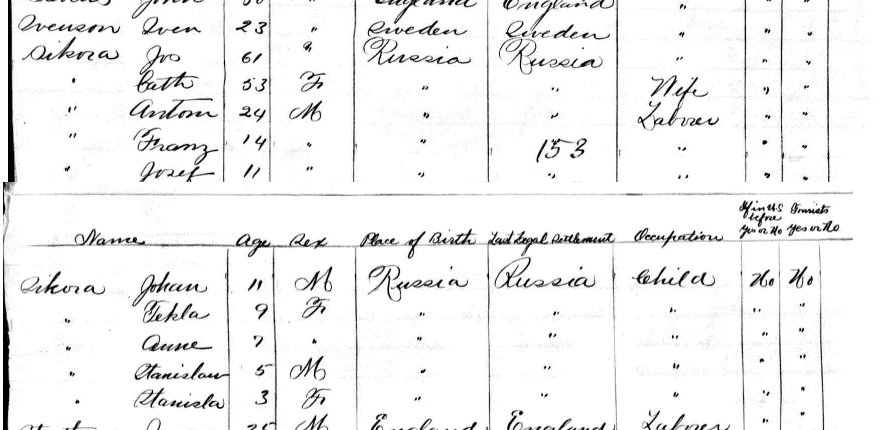 John 30 " England England " "
Svenson Sven 23 " Sweden Sweden " " "
Sikora Jos 61 " Russia Russia " " "
" Cath 53 F " " Wife " "
" Antom 24 M " " Laborer " "
" Franz 14 " " 153 " " "
" Josef 11 " " " " " "
Name Age Sex Place of Birth Last Legal Settlement Occupation If in U.S before Yes or No Tourists Yes or No
Sikora Johan 11 M Russia Russia Child No No
" Tekla 9 F " " " " "
" Anne 7 " " " " " "
" Stanislaw 5 M " " " " "
" Stanisla 3 F " " " " "
25 M England England Laborer " "